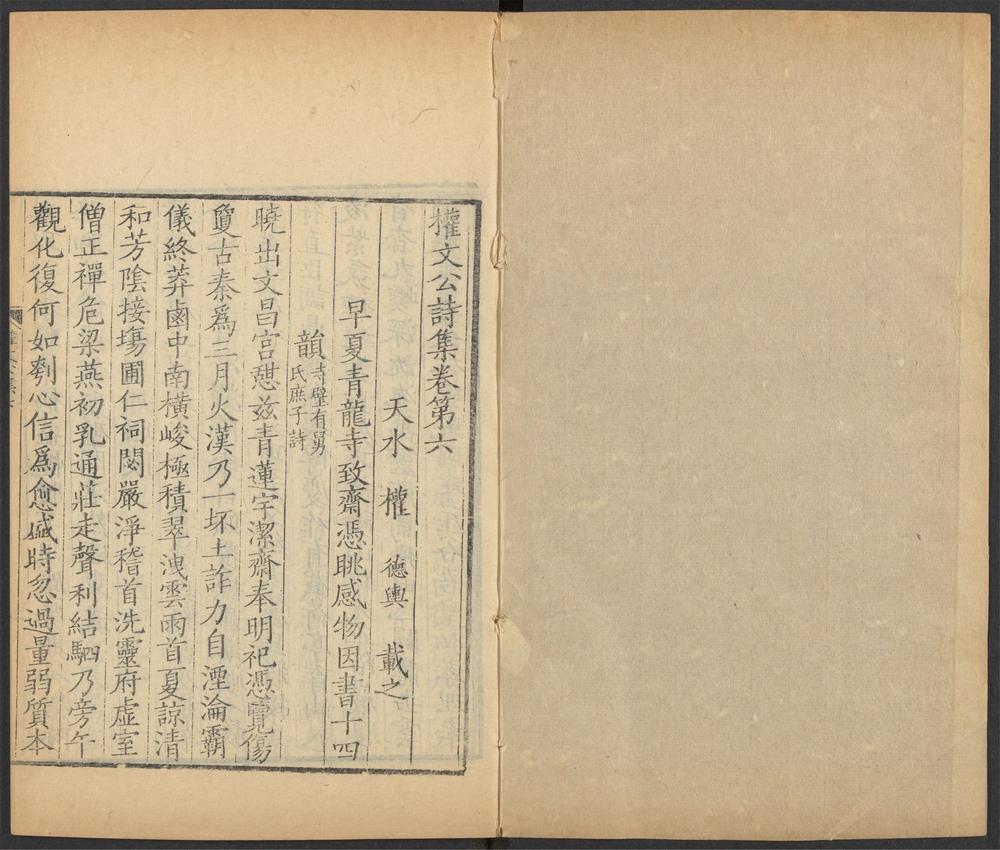 權文公詩集卷第六
天水 權 德輿 載之
早夏青龍寺致齋憑眺感物因書十四
韻寺壁有舅氏庶子詩
曉出文昌宮憇兹青蓮宇潔齋奉明祀憑覽傷
敻古秦爲三月火漢乃一坏土詐力自湮淪霸
儀終莽鹵中南橫峻極積翠洩雲雨首夏諒清
和芳陰接塲圃仁祠閟嚴淨稽首洗靈府虛室
僧正禪危梁燕初乳通莊走聲利結駟乃旁午
觀化復何如刳心信爲愈盛時忽過量弱質本